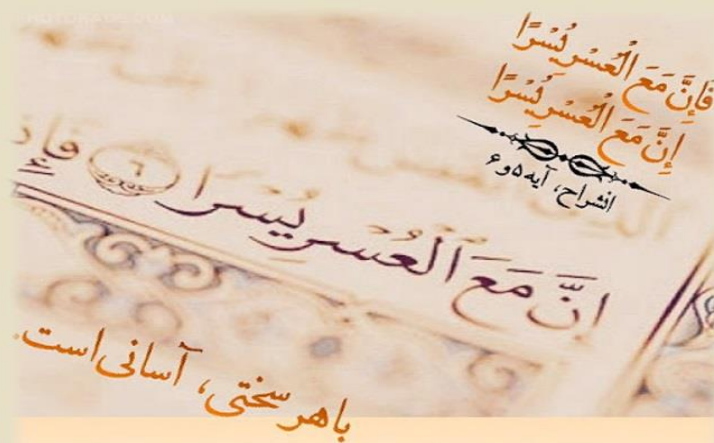 فَإِنَّ مَعَ الْعُسْرِ يُسْرًا
إِنَّ مَعَ الْعُسْرِ يُسْرًا
انشراح، آیه ۵ و ۶
إِنَّ مَعَ ٱلْعُسْرِ يُسْرًا ٦
با هر سختی، آسانی است.